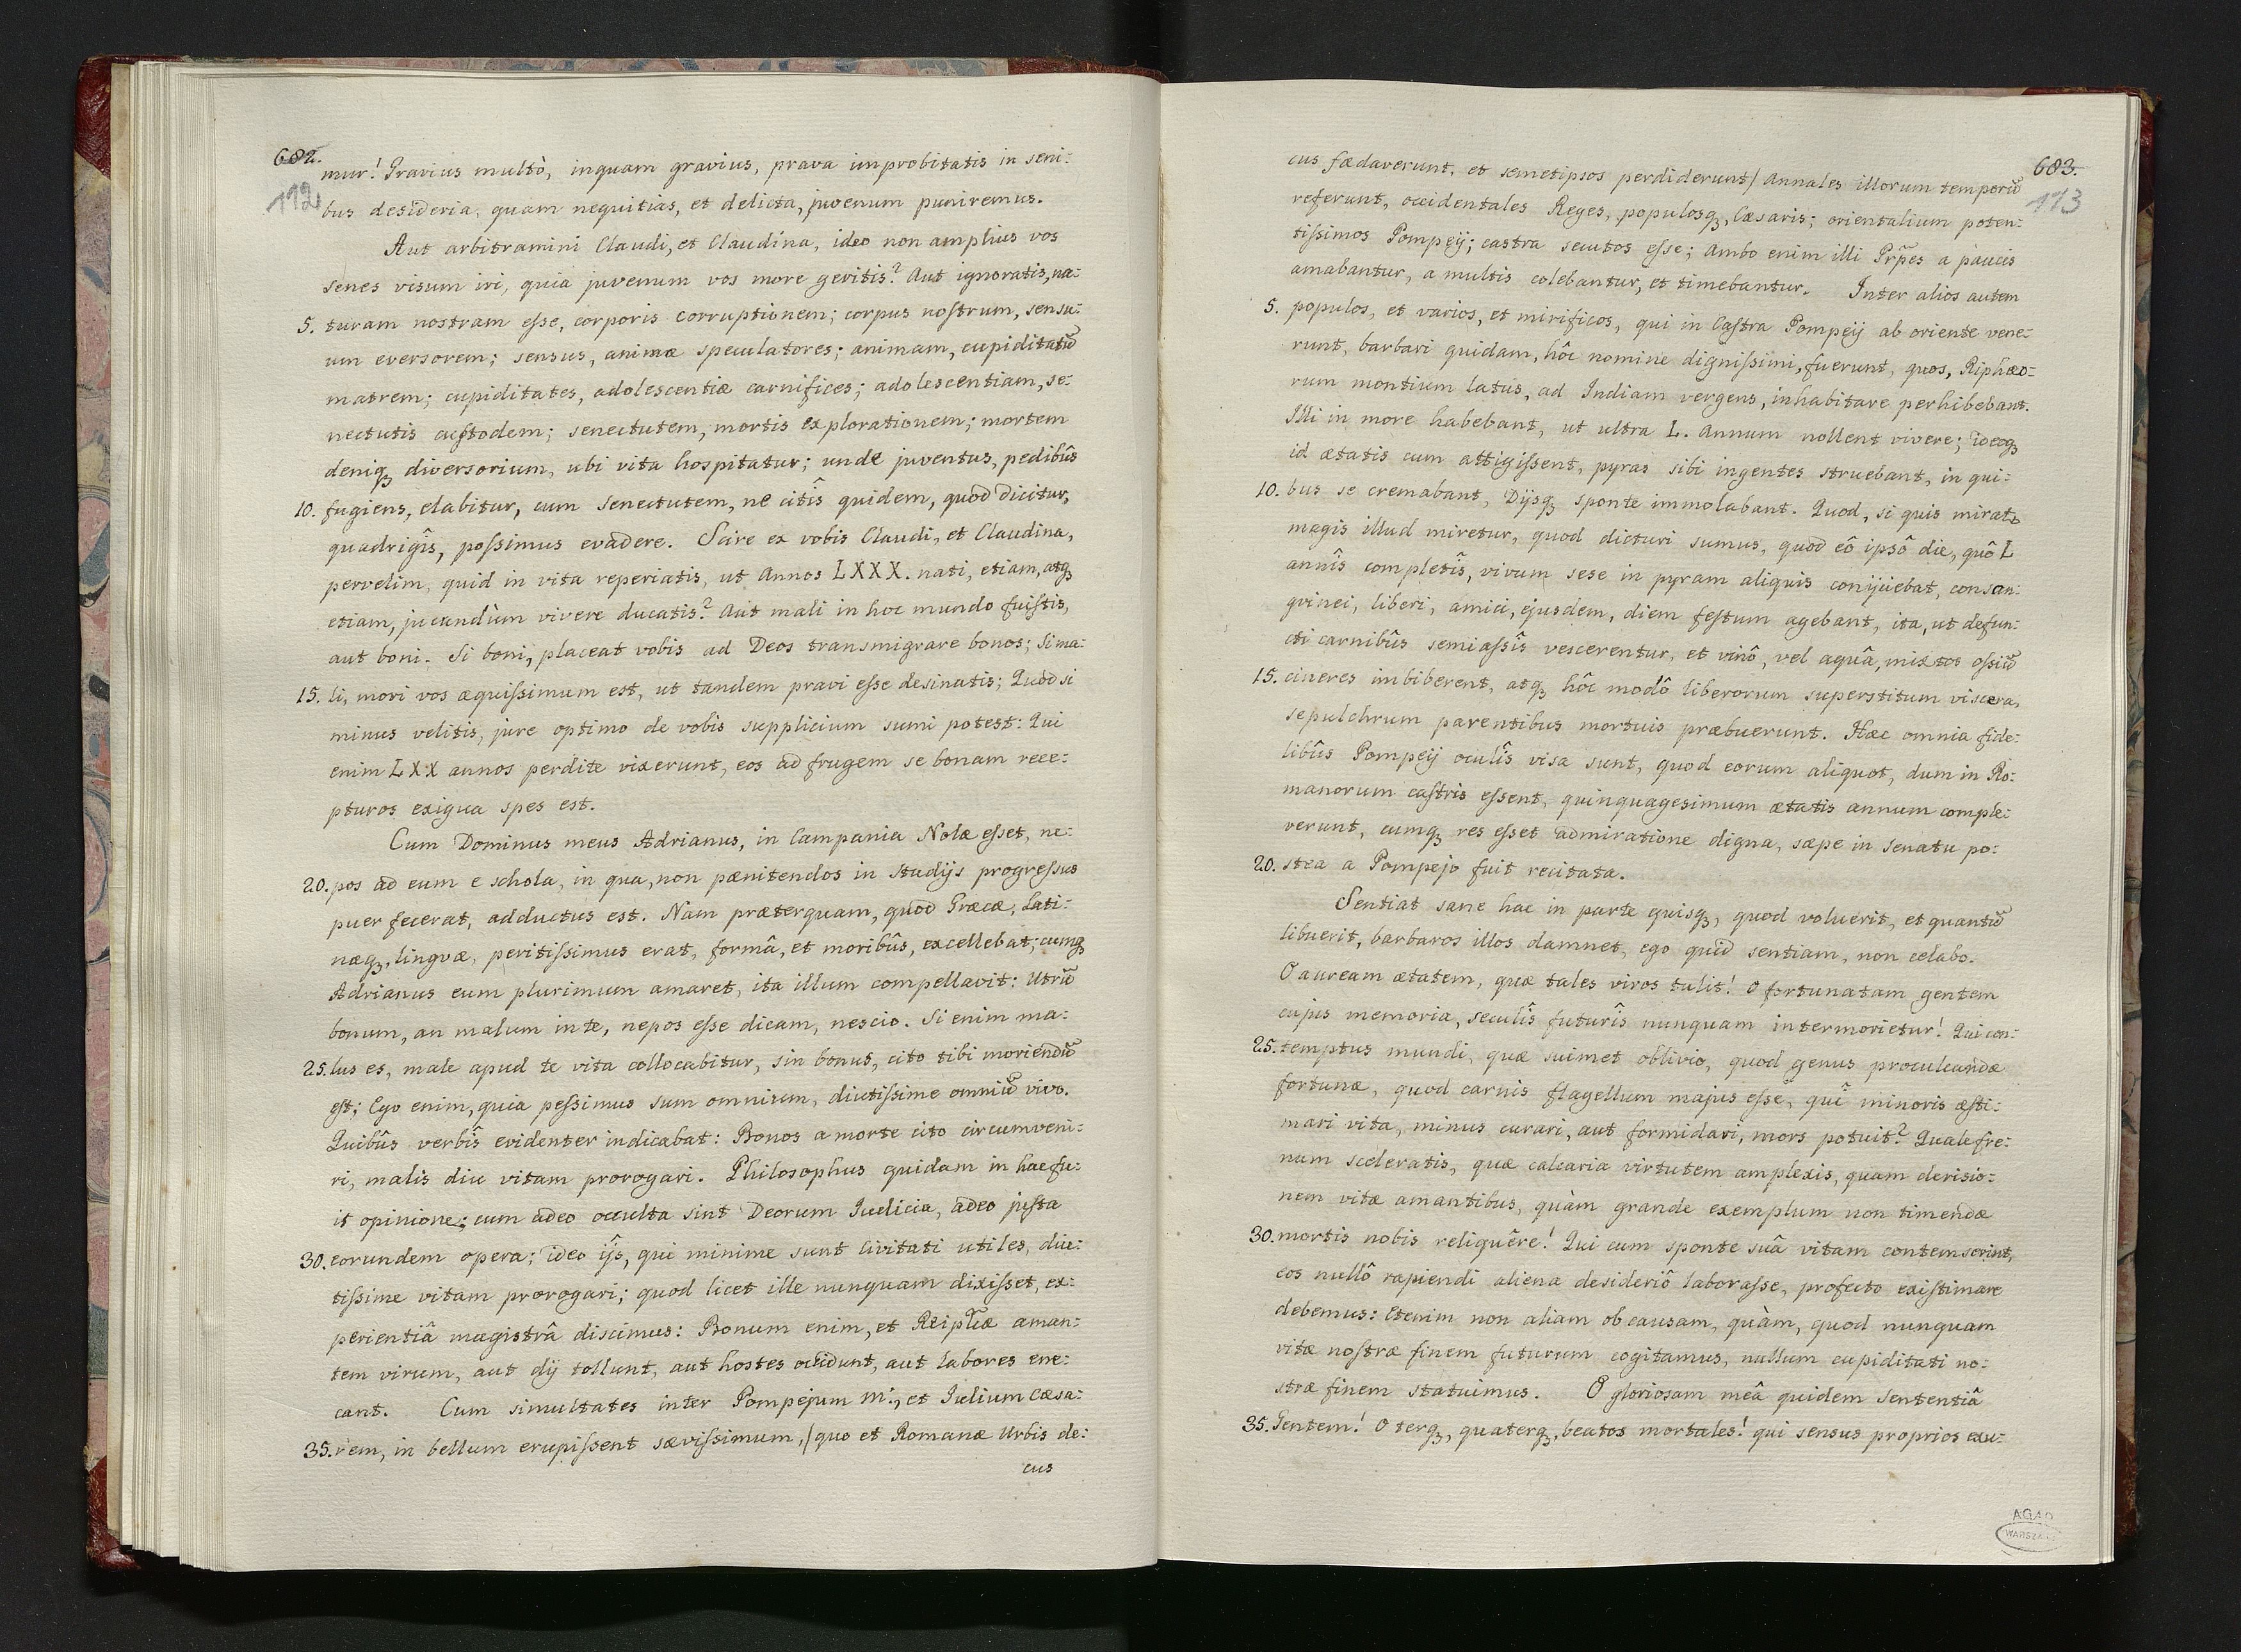 682.
112
mur! Gravius multò, inquam gravius, prava improbitatis in seni:
bus desideria, quam nequitias, et delicta, juvenum puniremus.
Aut arbitramini Claudi, et Claudina, ideo non amplius vos
senes visum iri, quia juvenum vos more geritis? Aut ignoratis, na:
5. turam nostram esse, corporis corruptionem; corpus nostrum, sensu:
um eversorem; sensus, animæ speculatores; animam, cupiditatu͂
matrem; cupiditates, adolescentiæ carnifices; adolescentiam, se:
nectutis custodem; senectutem, mortis explorationem; mortem
deniqȝ diversorium, ubi vita hospitatur; unde juventus, pedibûs
10. fugiens, elabitur, cum senectutem, ne citîs quidem, quod dicitur,
quadrigîs, possimus evadere. Scire ex vobis Claudi, et Claudina,
pervelim, quid in vita reperiatis, ut Annos LXXX. nati, etiam, atqȝ
etiam, jucundùm vivere ducatis? Aut mali in hoc mundo fuistis,
aut boni. Si boni, placeat vobis ad Deos transmigrare bonos; Si ma:
15. li, mori vos æquissimum est, ut tandem pravi esse desinatis; Quod si
minus velitis, jure optimo de vobis supplicium sumi potest: Qui
enim LXX annos perdite vixerunt, eos ad frugem se bonam rece:
pturos exigua spes est.
Cum Dominus meus Adrianus, in Campania Nolæ esset, ne:
20. pos ad eum e schola, in qua, non pænitendos in studijs progressus
puer fecerat, adductus est. Nam præterquam, quod Græcæ, Lati:
næqȝ, lingvæ, peritissimus erat, formâ, et moribûs, excellebat; cumqȝ
Adrianus eum plurimum amaret, ita illum compellavit: Utru͂
bonum, an malum in te, nepos esse dicam, nescio. Si enim ma:
25. lus es, male apud te vita collocabitur, sin bonus, cito tibi moriendu͂
est; Ego enim, quia pessimus sum omnium, diutissime omniu͂ vivo.
Quibûs verbîs evidenter indicabat: Bonos a morte cito circumveni:
ri, malis diu vitam prorogari. Philosophus quidam in hac fu:
it opinione; cum adeo occulta sint Deorum Iudicia, adeo justa
30. eorundem opera; ideo ijs, qui minime sunt Civitati utiles, diu:
tissime vitam prorogari; quod licet ille nunquam dixisset, ex:
perientiâ magistrâ discimus: Bonum enim, et Reipl͂cæ aman:
tem virum, aut dij tollunt, aut hostes occidunt, aut labores ene:
cant. Cum simultates inter Pompejum M:, et Iulium Cæsa:
35. rem, in bellum erupissent sævissimum, /quo et Romanæ Urbis de:
cus
683.
113
cus fædaverunt, et semetipsos perdiderunt/ Annales illorum temporu͂
referunt, occidentales Reges, populosqȝ, Cæsaris; orientalium poten:
tissimos Pompeij; castra secutos esse; Ambo enim illi Pr͂pes a paucis
amabantur, a multis colebantur, et timebantur. Inter alios autem
5. populos, et varios, et mirificos, qui in Castra Pompeij ab oriente vene:
runt, barbari quidam, hôc nomine dignissimi, fuerunt, quos, Riphæo:
rum montium latus, ad Indiam vergens, inhabitare perhibebant.
Illi in more habebant, ut ultra L. Annum nollent vivere; ideoqȝ
id ætatis cum attigissent, pyras sibi ingentes struebant, in qui:
10. bus se cremabant, Dijsqȝ sponte immolabant. Quod, si quis mirat͛
magis illud miretur, quod dicturi sumus, quod eô ipsô die, quô L
annîs completîs, vivum sese in pyram aliquis conijciebat, consan:
gvinei, liberi, amici, ejusdem, diem festum agebant, ita, ut defun:
cti carnibûs semiassîs vescerentur, et vinô, vel aquâ, mixtos ossiu͂
15. cineres imbiberent, atqȝ hôc modô liberorum superstitum viscera,
sepulchrum parentibus mortuis præbuerunt. Hæc omnia fide:
libûs Pompeij oculîs visa sunt, quod eorum aliquot, dum in Ro:
manorum castris essent, quinquagesimum ætatis annum comple:
verunt, cumqȝ res esset admiratione digna, sæpe in Senatu po:
20. stea a Pompejo fuit recitata.
Sentiat sane hac in parte quisqȝ, quod voluerit, et quantu͂
libuerit, barbaros illos damnet, ego quid sentiam, non celabo.
O auream ætatem, quæ tales viros tulit! O fortunatam gentem
cujus memoria, seculîs futurîs nunquam intermorietur! Qui con:
25. temptus mundi, quæ suimet oblivio, quod genus proculcandæ
fortunæ, quod carnis flagellum majus esse, quî minoris æsti:
mari vita, minus curari, aut formidari, mors potuit? Quale fre:
num sceleratis, quæ calcaria virtutem amplexis, quam derisio:
nem vitæ amantibus, quàm grande exemplum non timendæ
30. mortis nobis reliquêre! Qui cum sponte suâ vitam contemserint,
eos nullô rapiendi aliena desideriô laborasse, profecto existimare
debemus: Etenim non aliam ob causam, quàm, quod nunquam
vitæ nostræ finem futurum cogitamus, nullum cupiditati no:
stræ finem statuimus. O gloriosam meâ quidem Sententiâ
35. Gentem! O terqȝ, quaterqȝ, beatos mortales! qui sensus proprios exu:
AGAD
WARSZAWA